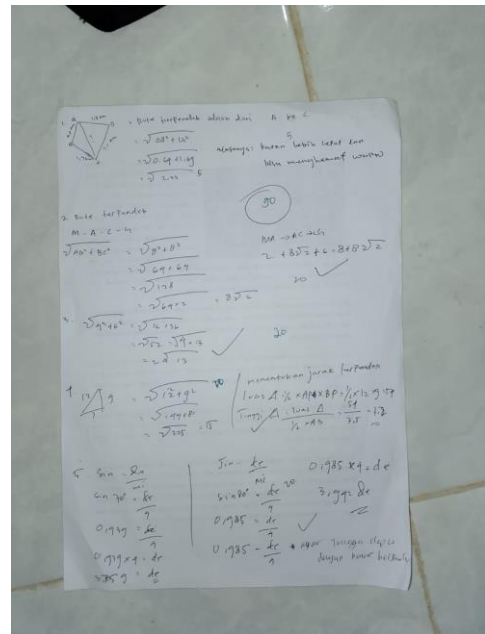 1.
= Rute terpendek adalah dari A ke C
= √0.8² + 1.3²
= √0.64 + 1.69
= √2.33
5
alasannya: karena lebih cepat dan
bisa menghemat waktu
5
90
2. Rute terpendek
M - A - C - G
√AB² + BC² = √8² + 8²
= √64 + 64
= √128
= √64 × 2 = 8√2
MA → AC → CG
2 + 8√2 + 6 = 8 + 8√2
20
3. √4² + 6² = √16 + 36
= √52 = √4 × 13
= 2√13
20
4
12 9
= √12² + 9²
= √144 + 81
= √225 = 15
20
menentukan jarak terpendek
Luas Δ = ½ × AP × BP = ½ × 12 × 9 = 54
Tinggi Δ = Luas Δ / ½ × AB = 54 / 7,5 = 7,2
5 Sin = de / mi
Sin 70° = de / 4
0,939 = de / 4
0,939 × 4 = de
= de
Sin = de / mi
Sin 80° = de / 4
20
0,985 = de / 4
0,985 = de / 4
0,985 × 4 = de
3,94 = de
• agar tangga dapat